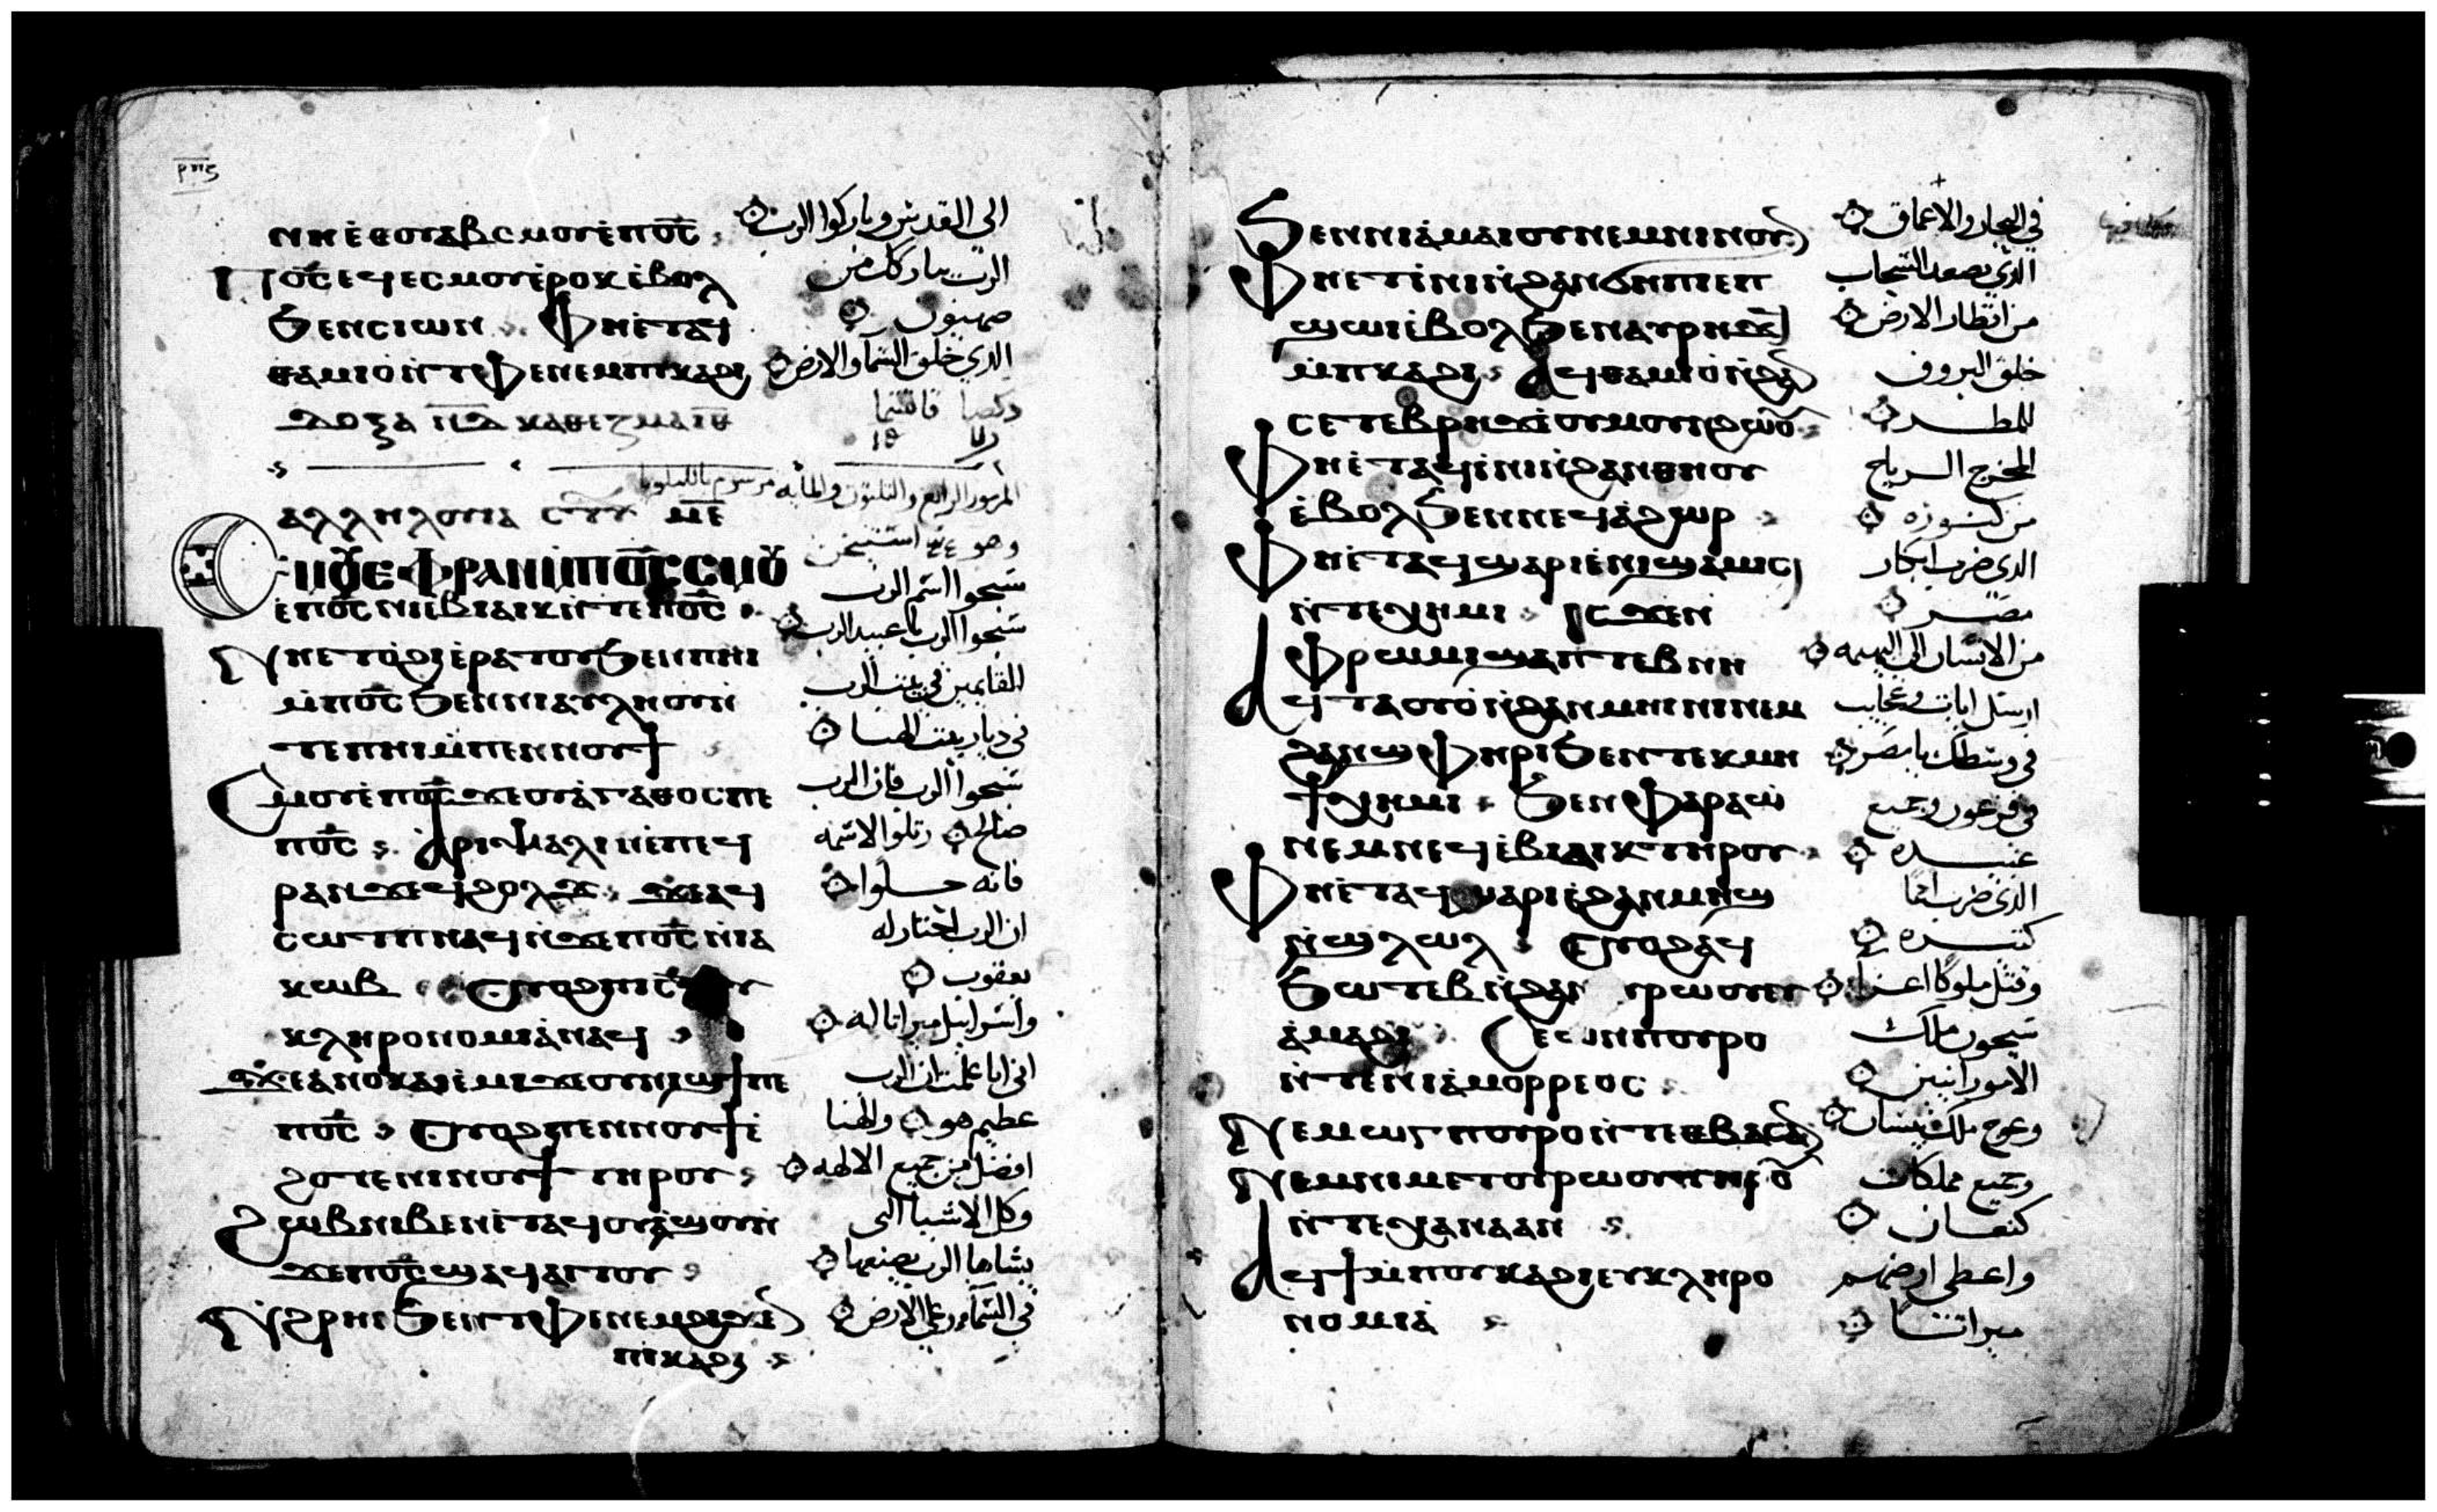 ⲣⲡⲋ
ⲛⲏⲉⲑⲟⲩⲁⲃ ⲥⲙⲟⲩ ⲉⲡⲟ̅ⲥ̅
الى القدس وباركوا الرب
Ⲡⲟ̅ⲥ̅ ⲉϥⲉⲥⲙⲟⲩ ⲉⲣⲟⲕ ⲉⲃⲟⲗ
الرب يباركك من
ϧⲉⲛ ⲥⲓⲱⲛ Ⲫⲏⲉⲧⲁϥ
صهيون
ⲑⲁⲙⲓⲟ ⲛⲧⲫⲉ ⲛⲉⲙ ⲡⲕⲁϩⲓ
الذي خلق السما والارض
ⲇⲟⲝⲁ ⲕⲁⲑⲉⲍⲙⲁ
دكصا
المزمور الرابع والثلثون والمايه مرسوم بالليلويا
ⲁⲗⲗⲏⲗⲟⲩⲓⲁ
Ⲥⲙⲟⲩ ⲉⲫⲣⲁⲛ ⲙⲡⲟ̅ⲥ̅ ⲥⲙⲟⲩ
سبحوا اسم الرب
ⲉⲡⲟ̅ⲥ̅ ⲛⲓⲉⲃⲓⲁⲓⲕ ⲛⲧⲉ ⲡⲟ̅ⲥ̅
سبحوا الرب يا عبيد الرب
Ⲛⲏⲉⲧⲟϩⲓ ⲉⲣⲁⲧⲟⲩ ϧⲉⲛ ⲡⲏⲓ
القايمين في بيت الرب
ⲙⲡⲟ̅ⲥ̅ ϧⲉⲛ ⲛⲓⲁⲩⲗⲏⲟⲩ ⲛ
في ديار بيت الهنا
ⲧⲉ ⲡⲏⲓ ⲙⲡⲉⲛⲛⲟⲩϯ
Ⲥⲙⲟⲩ ⲉⲡⲟ̅ⲥ̅ ϫⲉ ⲟⲩⲁⲅⲁⲑⲟⲥ ⲡⲉ
سبحوا الرب فان الرب
ⲡⲟ̅ⲥ̅ Ⲁⲣⲓⲯⲁⲗⲓⲛ ⲉⲡⲉϥ
صالح رتلوا لاسمه
ⲣⲁⲛ ϫⲉ ϥϩⲟⲗϫ ϫⲉ ⲁϥ
فانه حلوا
ⲥⲱⲧⲡ ⲛⲁϥ ⲛϫⲉ ⲡⲟ̅ⲥ̅ ⲛⲓⲁ
ان الرب اختار له
ⲕⲱⲃ Ⲟⲩⲟϩ
يعقوب
ⲕⲗⲏⲣⲟⲛⲟⲙⲓⲁ ⲛⲁϥ
واسراييل ميراثا له
ϫⲉ ⲁⲛⲟⲕ ⲁⲓⲉⲙⲓ ϫⲉ ⲟⲩⲛⲓϣϯ ⲡⲉ
اني انا علمت ان الرب
ⲡⲟ̅ⲥ̅ Ⲟⲩⲟϩ ⲡⲉⲛⲛⲟⲩϯ ⲉ
عظيم هو والهنا
ϩⲟⲧⲉ ⲛⲓⲛⲟⲩϯ ⲧⲏⲣⲟⲩ
افضل من جميع الالهه
Ϩⲱⲃ ⲛⲓⲃⲉⲛ ⲉⲧⲁϥⲟⲩⲁϣⲟⲩ ⲛ
وكل الاشيا التى
ϫⲉ ⲡⲟ̅ⲥ̅ ϣⲁϥⲁⲓⲧⲟⲩ
يشاها الرب يصنعها
Ⲛϩⲣⲏⲓ ϧⲉⲛ ⲧⲫⲉ ⲛⲉⲙ ϩⲓϫⲉⲛ
في السما وعلى الارض
ⲡⲓⲕⲁϩⲓ
ϧⲉⲛ ⲛⲓⲁⲙⲁⲓⲟⲩ ⲛⲉⲙ ⲛⲓⲛⲟⲩⲛ
في البحار والاعماق
Ⲫⲏⲉⲧⲓⲛⲓ ⲛϩⲁⲛϭⲏⲡⲓ ⲉⲡ
الذي يصعد السحاب
ϣⲱⲓ ⲉⲃⲟⲗ ϧⲉⲛ ⲁⲩⲣⲏϫϥ
من اقطار الارض
ⲙⲡⲕⲁϩⲓ Ⲁϥⲑⲁⲙⲓⲟ ⲛϩⲁⲛ
خلق البروق
ⲥⲉⲧⲉⲃⲣⲏϫ ⲉⲟⲩⲙⲟⲩⲛϩⲱⲟⲩ
للمطر
Ⲫⲏⲉⲧⲁϥⲓⲛⲓ ⲛϩⲁⲛⲑⲏⲟⲩ
المخرج الرياح
ⲉⲃⲟⲗ ϧⲉⲛ ⲛⲉϥⲁϩⲱⲣ
من كنوزه
Ⲫⲏⲉⲧⲁϥϣⲁⲣⲓ ⲉⲛⲓϣⲁⲙⲓⲥⲓ
الذي ضرب ابكار
ⲛⲧⲉ ⲭⲏⲙⲓ ⲓⲥϫⲉⲛ
مصر
ⲫⲣⲱⲙⲓ ϣⲁ ⲡⲧⲉⲃⲛⲏ
من الانسان الى البهيمه
Ⲁϥⲧⲁⲟⲩⲟ ⲛϩⲁⲛⲙⲏⲓⲛⲓ ⲛⲉⲙ
ارسل ايات وعجايب
ϩⲁⲛϣⲫⲏⲣⲓ ϧⲉⲛ ⲧⲉⲕⲙⲏ
في وسطك يا مصر
ϯ ⲭⲏⲙⲓ ϧⲉⲛ ⲫⲁⲣⲁⲱ
في فرعون وجميع
ⲛⲉⲙ ⲛⲉϥⲉⲃⲓⲁⲓⲕ ⲧⲏⲣⲟⲩ
عبيده
Ⲫⲏⲉⲧⲁϥϣⲁⲣⲓ ⲉϩⲁⲛⲙⲏϣ
الذي ضرب امما
ⲛϣⲗⲱⲗ Ⲟⲩⲟϩ ⲁϥ
كثيره
ϧⲱⲧⲉⲃ ⲛϩⲁⲛ ⲩⲣⲱⲟⲩ ⲉⲩ
وقتل ملوكا اعزا
ⲁⲙⲁϩⲓ Ⲥⲉⲱⲛ ⲡⲟⲩⲣⲟ
سيحون ملك
ⲛⲧⲉ ⲛⲓⲁⲙⲟⲣⲣⲉⲟⲥ
الامورانيين
Ⲛⲉⲙ ⲱⲅ ⲡⲟⲩⲣⲟ ⲛⲧⲉ ⲑⲃⲁⲥⲁⲛ
وعوج ملك بيسان
Ⲛⲉⲙ ⲛⲓⲙⲉⲧⲟⲩⲣⲱⲟⲩ ⲧⲏⲣⲟⲩ
وجميع مملكات
ⲛⲧⲉ ⲭⲁⲛⲁⲁⲛ
كنعان
Ⲁϥϯ ⲙⲡⲟⲩⲕⲁϩⲓ ⲉⲩⲕⲗⲏⲣⲟ
واعطى ارضهم
ⲛⲟⲙⲓⲁ
ميراثا